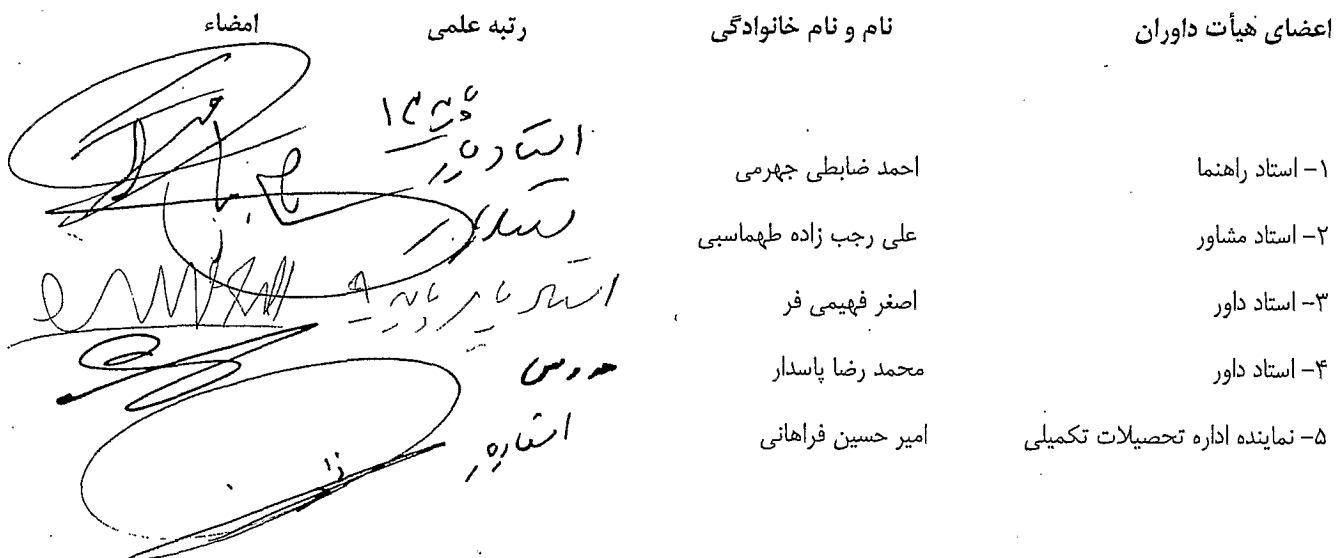 اعضای هیأت داوران نام و نام خانوادگی رتبه علمی امضاء
۱- استاد راهنما احمد ضابطی جهرمی استادیار پایه ۱۳
۲- استاد مشاور علی رجب زاده طهماسبی استادیار
۳- استاد داور اصغر فهیمی فر استادیار پایه ۹
۴- استاد داور محمد رضا پاسدار مدرس
۵- نماینده اداره تحصیلات تکمیلی امیر حسین فراهانی استادیار